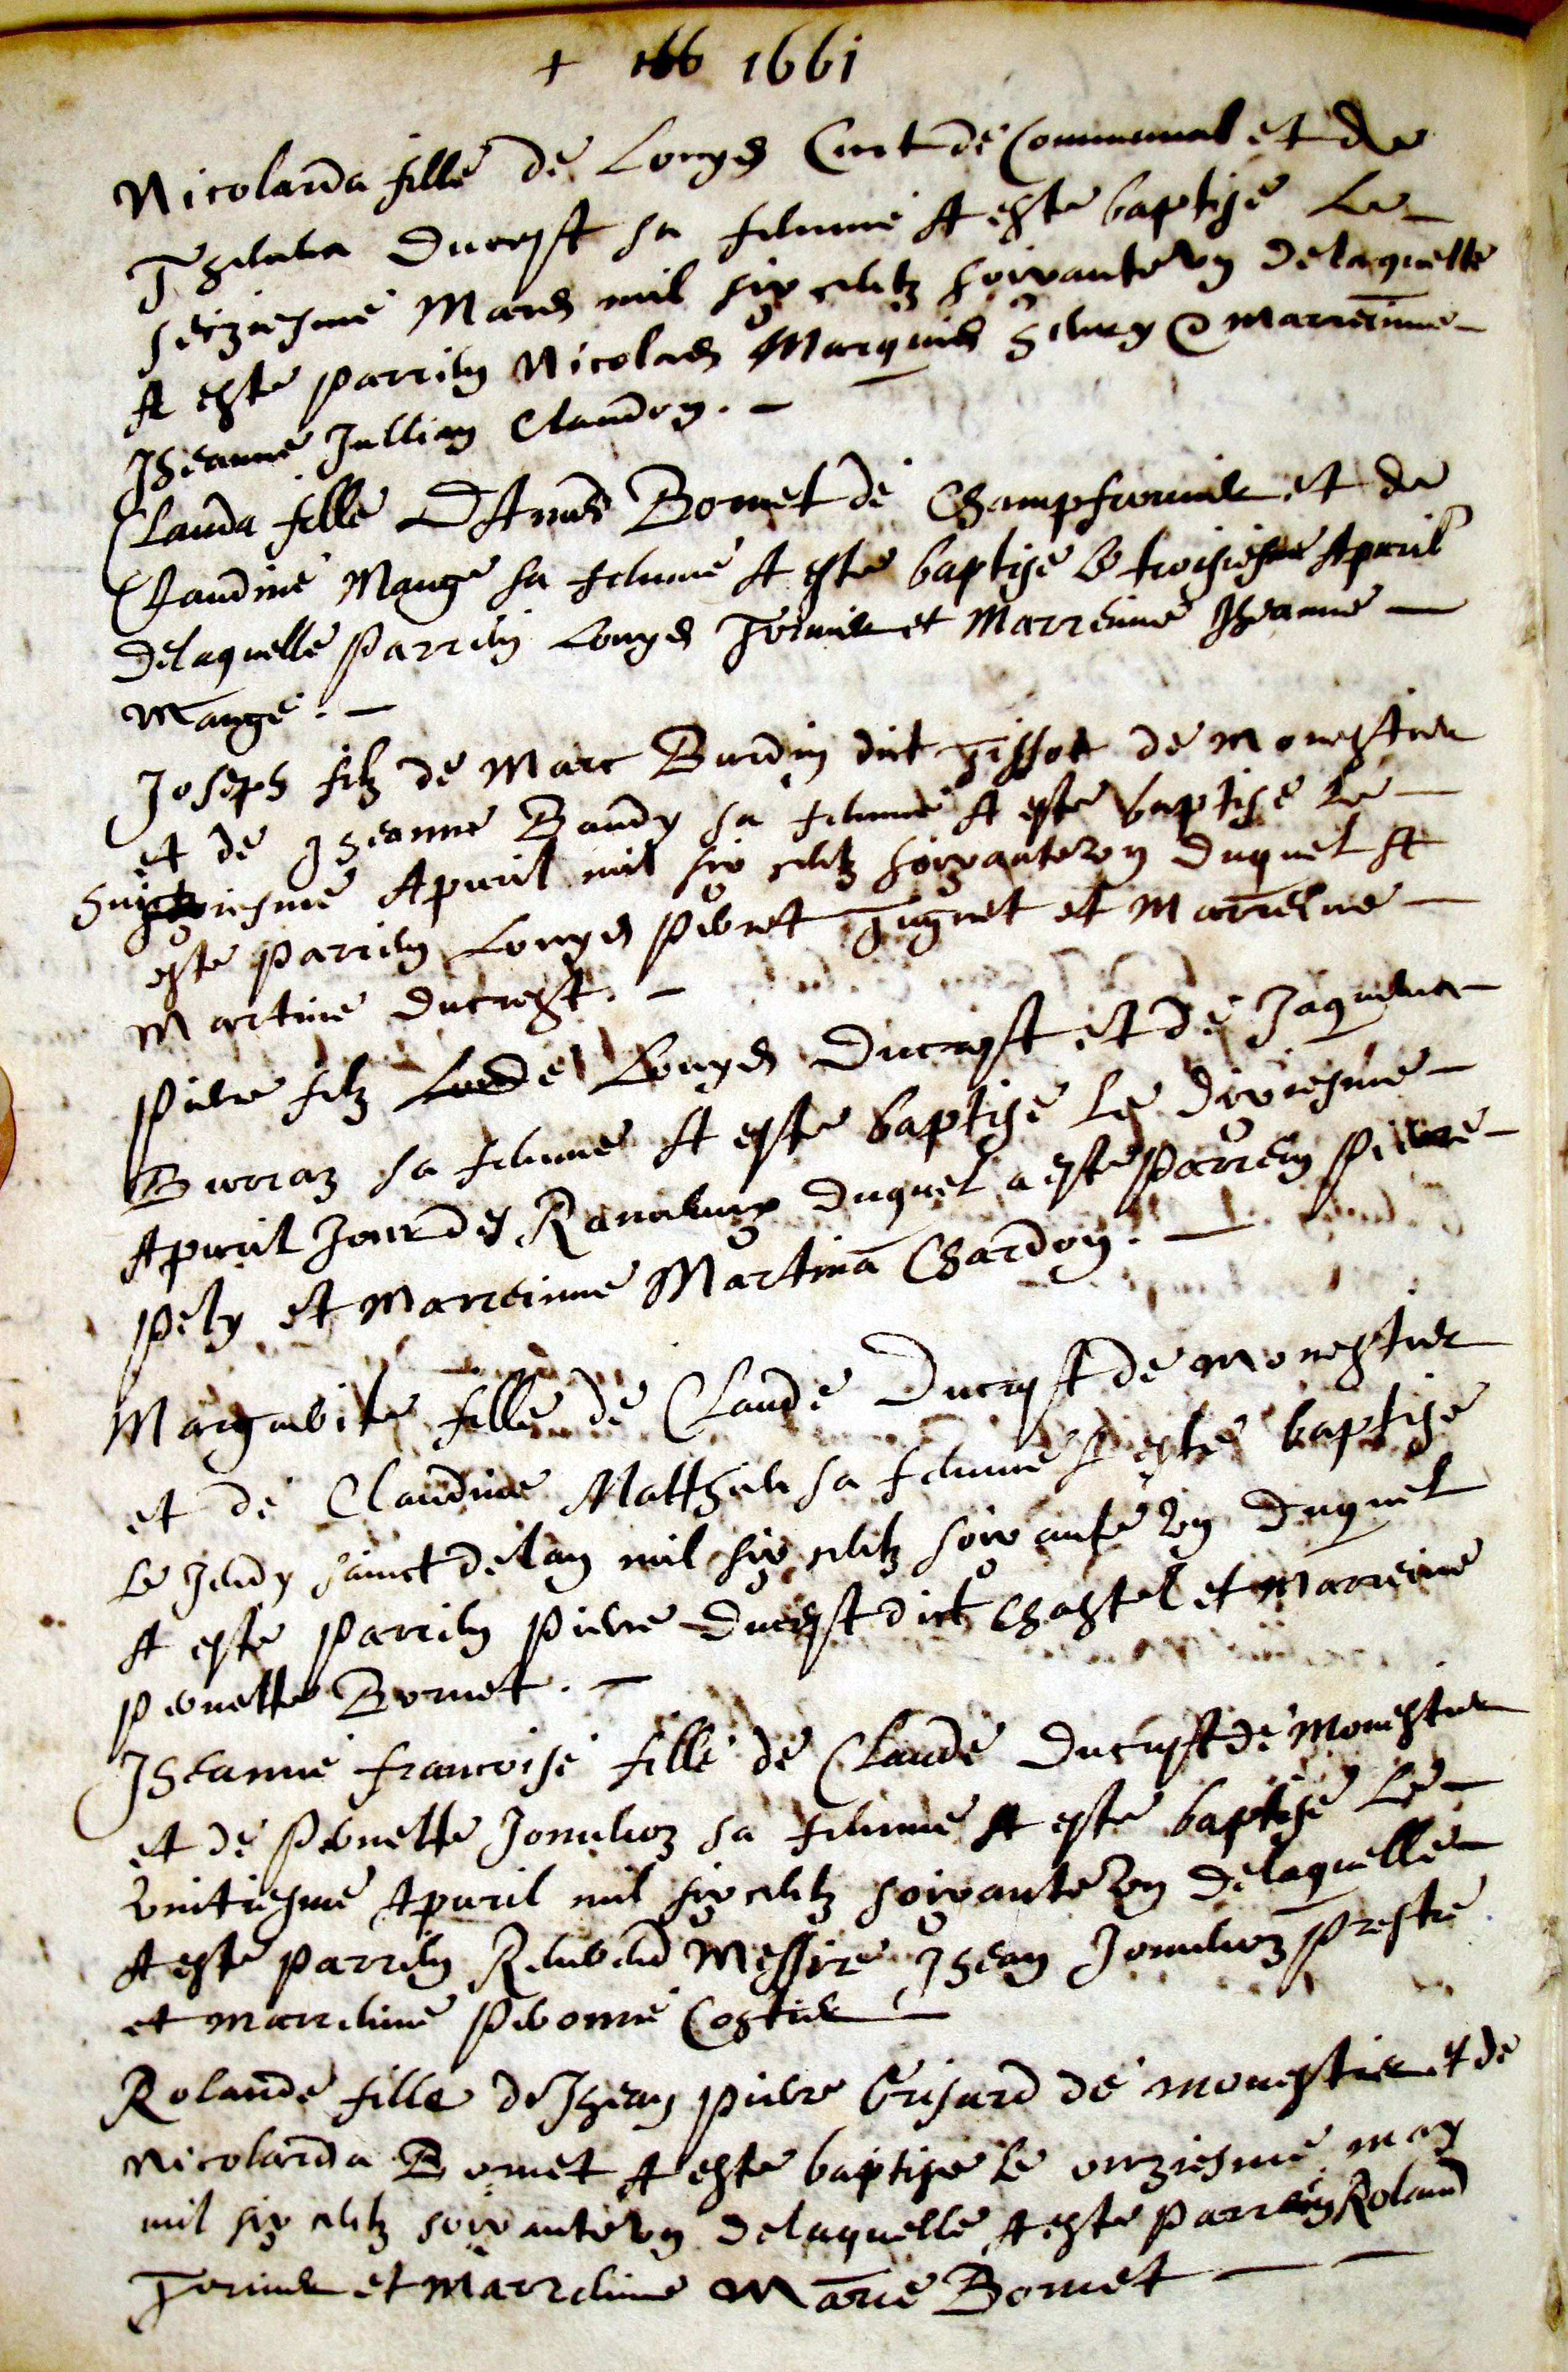 + 166 1661
Nicolarda fille de Louys Curt de Communal et de
Thevena Ducrest sa femme A este baptise Le
seiziesme Mars mil six centz soixante vng delaquelle
A este parrein Nicolas Marquis et marreinne
Jheanne Jullian Claudon.
Clauda fille D'Amed Bornet de et de
Claudine Mange sa femme A este baptise le troisiesme Apuril
delaquelle parrein Louys et Marreinne Jheanne
Mange.
Joseph filz de Marc Burdin dict Tissot de Monestier
et de Jheanne Baudy sa femme A este baptise Le
huictziesme Apuril mil six centz soixante vng duquel A
este parrein Louys Pernet et Marreine
Martine Ducrest.
Pierre filz de Louys Ducrest et de Jaquema
Burraz sa femme A este baptise Le dixiesme
Apuril Jour des Rameaux duquel a este parrein Pierre
Pely et Marreinne Martina Chardon.
Marguerite fille de Claude Ducrest de Monestier
et de Claudine Matthieu sa femme A este baptise
le Jeudy sainct de lan mil six centz soixante vng duquel
A este parrein Pierre Ducrest dict Chastel et Marreine
Pernette Bornet.
Jheanne francoise fille de Claude Ducrest de Monestier
et de Pernette sa femme A este baptise Le
vintiesme Apuril mil six centz soixante vng delaquelle
A este parrein Reuerend Messire Jhean prestre
et marreinne Peronne Costier
Rolande fille de Jhean Pierre Grisard de monestier et de
Nicolarda Bornet A este baptise le onziesme may
mil six centz soixante vng delaquelle A este parrein Roland
et Marreinne Marie Bornet